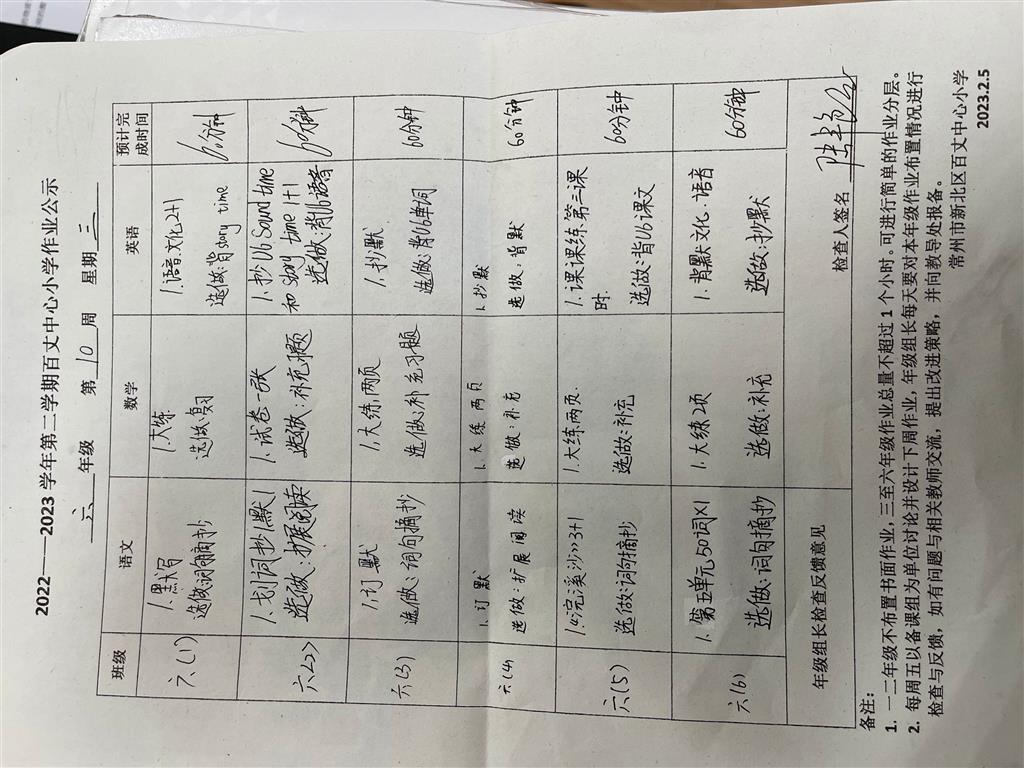 2022——2023 学年第二学期百丈中心小学作业公示
六 年级 第 10 周 星期 三
班级 语文 数学 英语 预计完成时间
六(1) 1.默写 1.大练 1.语音.文化2+1 60分钟
选做:词句摘抄 选做:复习 选做:背story time
六(2) 1.划词抄1默1 1.试卷一张 1.抄U6 Sound time 60分钟
选做:扩展阅读 选做:补充习题 和 Story time 1+1
选做:背U6语音
六(3) 1.订默 1.大练,两页 1.抄默 60分钟
选做:词句摘抄 选做:补充习题 选做:背U6单词
六(4) 1.订默 1.大练两页 1.抄默 60分钟
选做:扩展阅读 选做:补充 选做:背默
六(5) 1.《浣溪沙》3+1 1.大练,两页. 1.课课练.第三课时. 60分钟
选做:词句摘抄 选做:补充 选做:背U6课文
六(6) 1.第五单元50词×1 1.大练2页 1.背默文化.语音 60分钟
选做:词句摘抄 选做:补充 选做:抄默
年级组长检查反馈意见 检查人签名
备注:
1. 一二年级不布置书面作业,三至六年级作业总量不超过 1 个小时。可进行简单的作业分层。
2. 每周五以备课组为单位讨论并设计下周作业,年级组长每天要对本年级作业布置情况进行
检查与反馈,如有问题与相关教师交流,提出改进策略,并向教导处报备。
常州市新北区百丈中心小学
2023.2.5